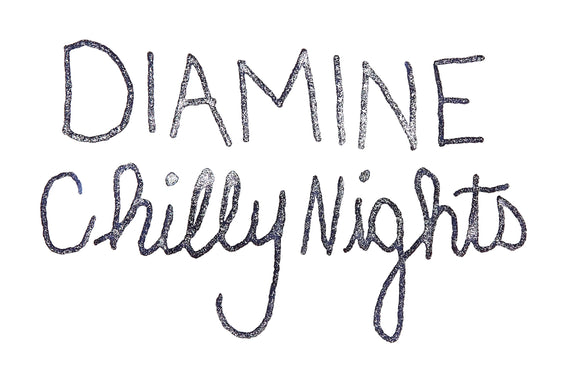 DIAMINE
Chilly Nights